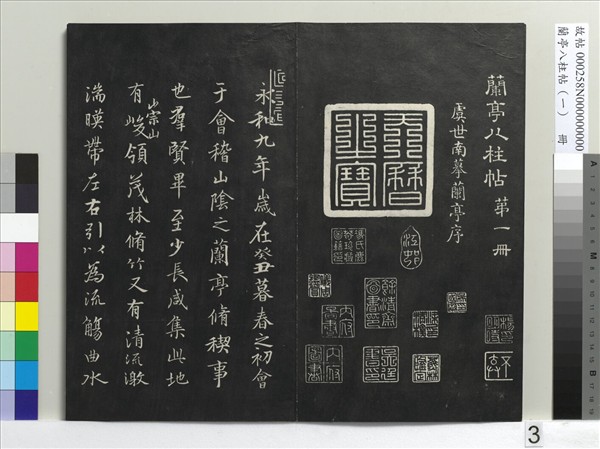 故帖 000258N000000000
蘭亭八柱帖（一） 冊
蘭亭八柱帖 第一冊
虞世南摹蘭亭序
天曆之寶
永和九年歲在癸丑暮春之初會
于會稽山陰之蘭亭脩禊事
也羣賢畢至少長咸集此地
有崇山峻領茂林脩竹又有清流激
湍暎帶左右引以為流觴曲水
3